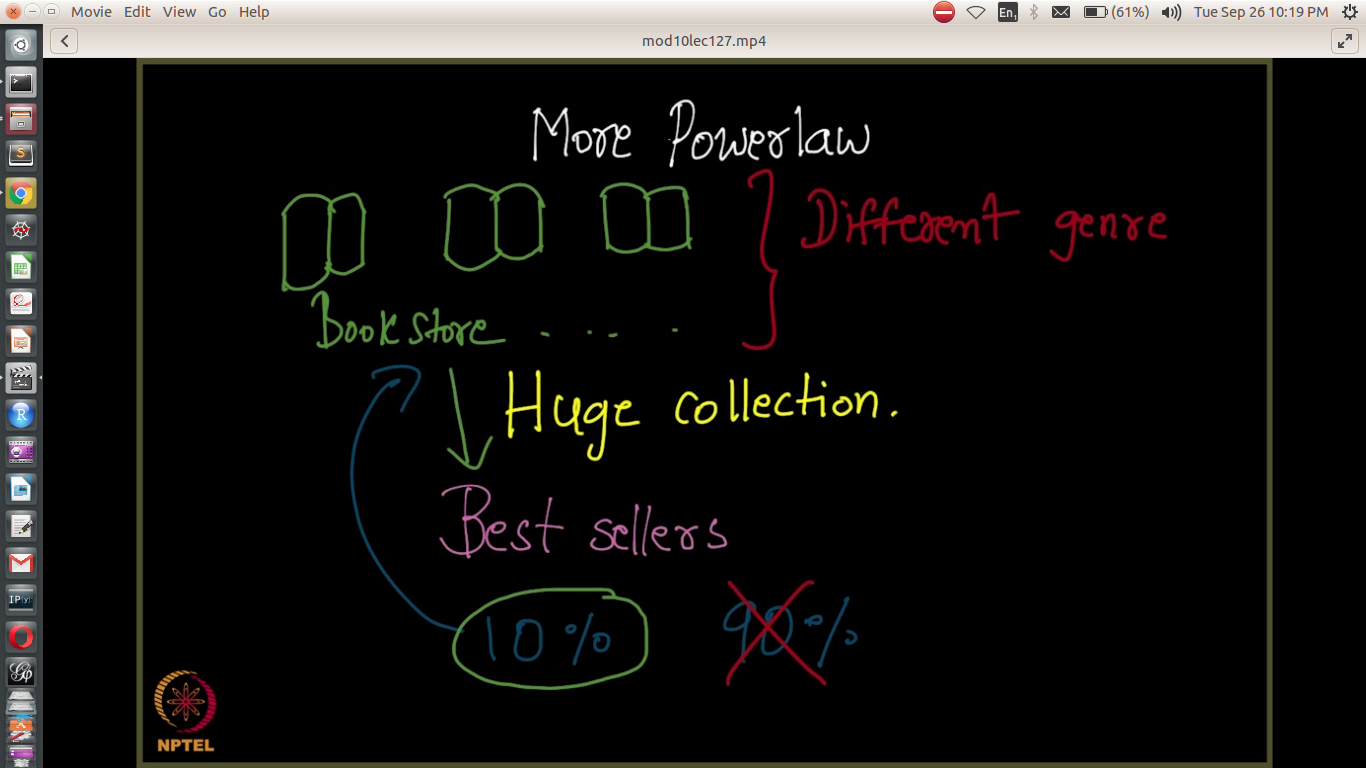 Movie Edit View Go Help En1 (61%) Tue Sep 26 10:19 PM
mod10lec127.mp4
More Powerlaw
Different genre
Bookstore . . . .
Huge collection.
Best sellers
10% 90%
NPTEL